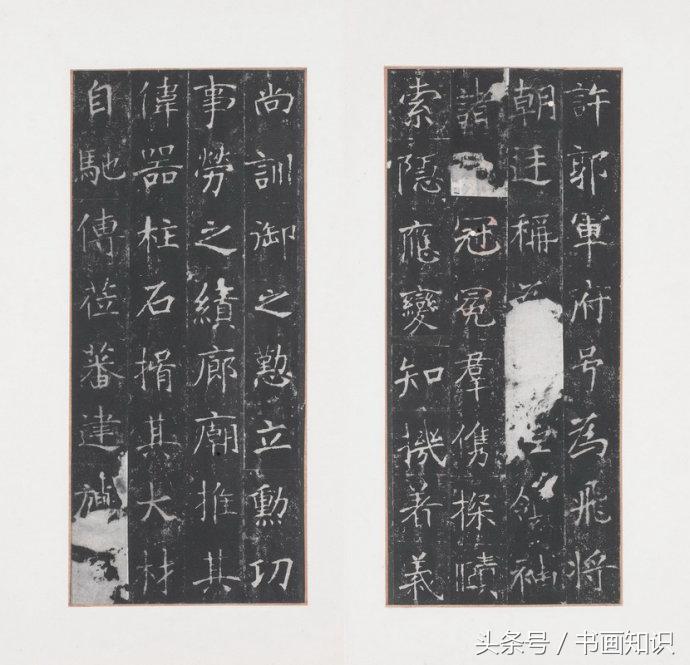 許郭軍府号為飛將
朝廷稱領袖
諸冠冕羣儁探賾
索隱應變知機著義
尚訓御之懃立勳功
事勞之績廊廟推其
偉器柱石揖其大材
自馳傳莅蕃建
头条号 / 书画知识